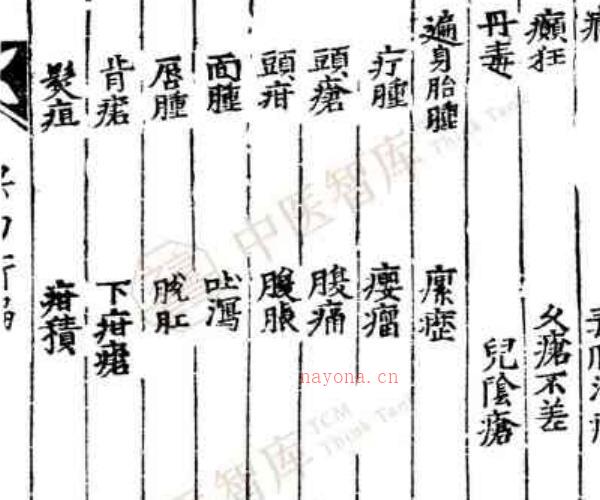 癲狂 久瘡不差
丹毒 兒陰瘡
遍身胎腫 瘰癧
疔腫 癭瘤
頭瘡 腹痛
頭疳 腹脹
面腫 吐瀉
唇腫 脫肛
背瘡 下疳瘡
髮疽 疳積
中医智库
Think Tank
nayona.cn
智库
TCM
Think Tank